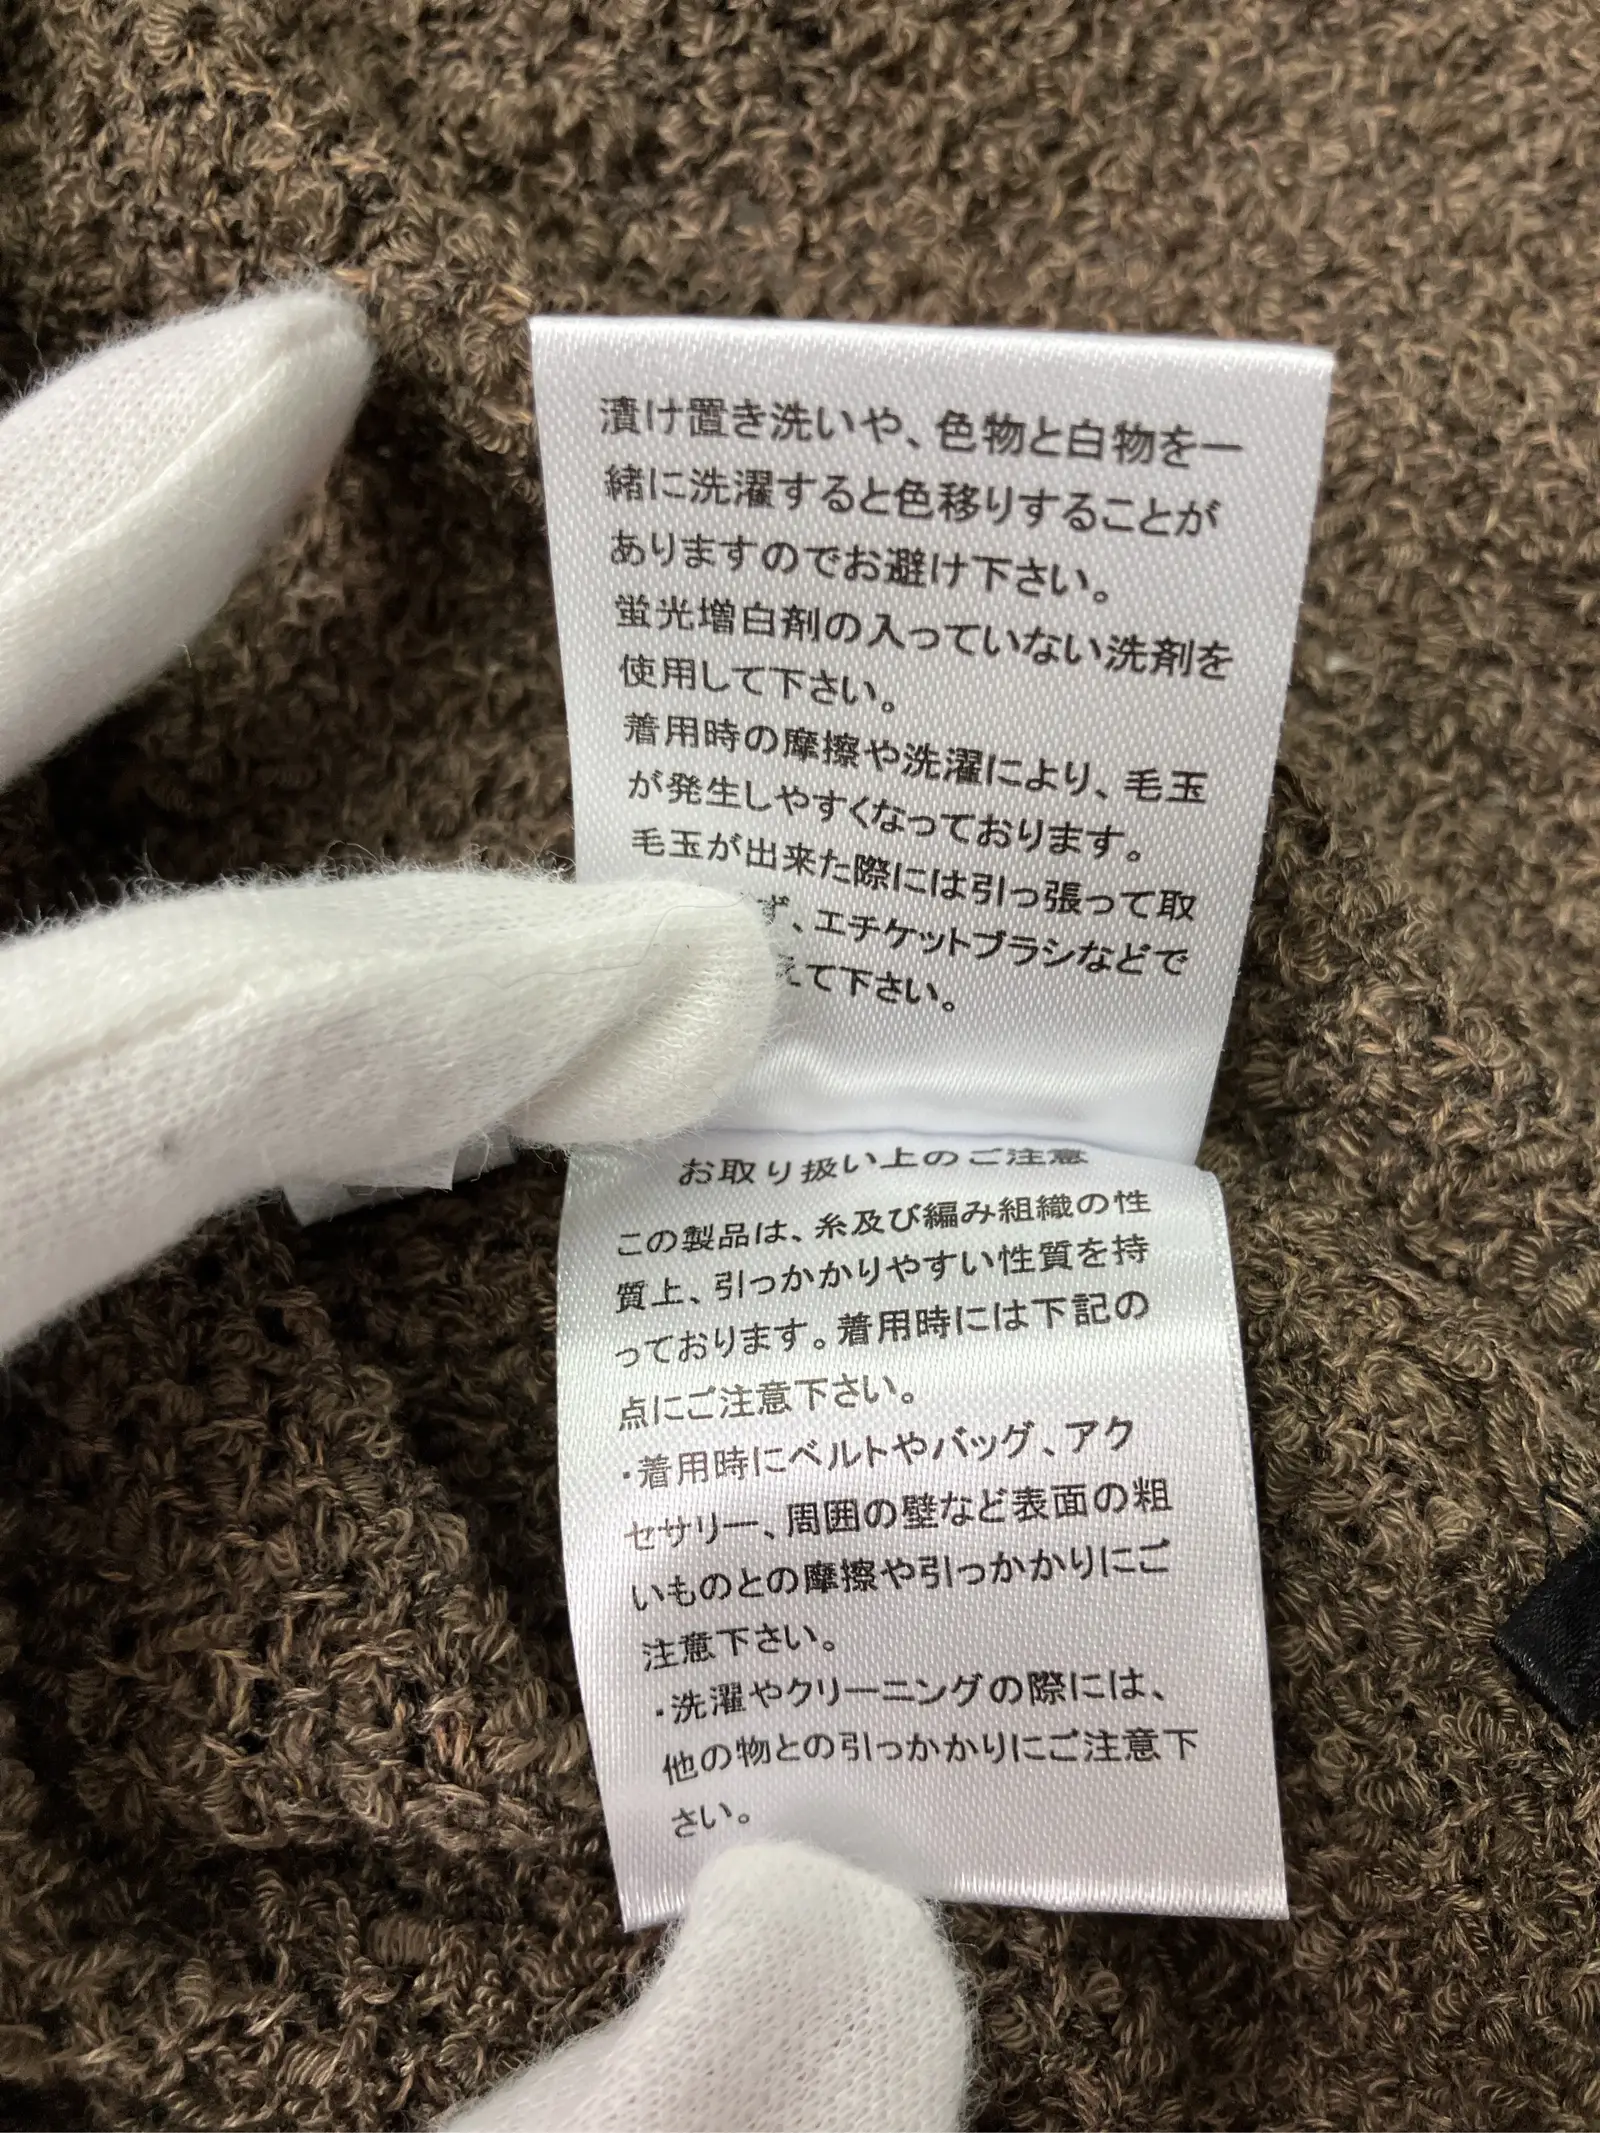 漬け置き洗いや、色物と白物を一
緒に洗濯すると色移りすることが
ありますのでお避け下さい。
蛍光増白剤の入っていない洗剤を
使用して下さい。
着用時の摩擦や洗濯により、毛玉
が発生しやすくなっております。
毛玉が出来た際には引っ張って取
ず、エチケットブラシなどで
えて下さい。
お取り扱い上のご注意
この製品は、糸及び編み組織の性
質上、引っかかりやすい性質を持
っております。着用時には下記の
点にご注意下さい。
・着用時にベルトやバッグ、アク
セサリー、周囲の壁など表面の粗
いものとの摩擦や引っかかりにご
注意下さい。
・洗濯やクリーニングの際には、
他の物との引っかかりにご注意下
さい。